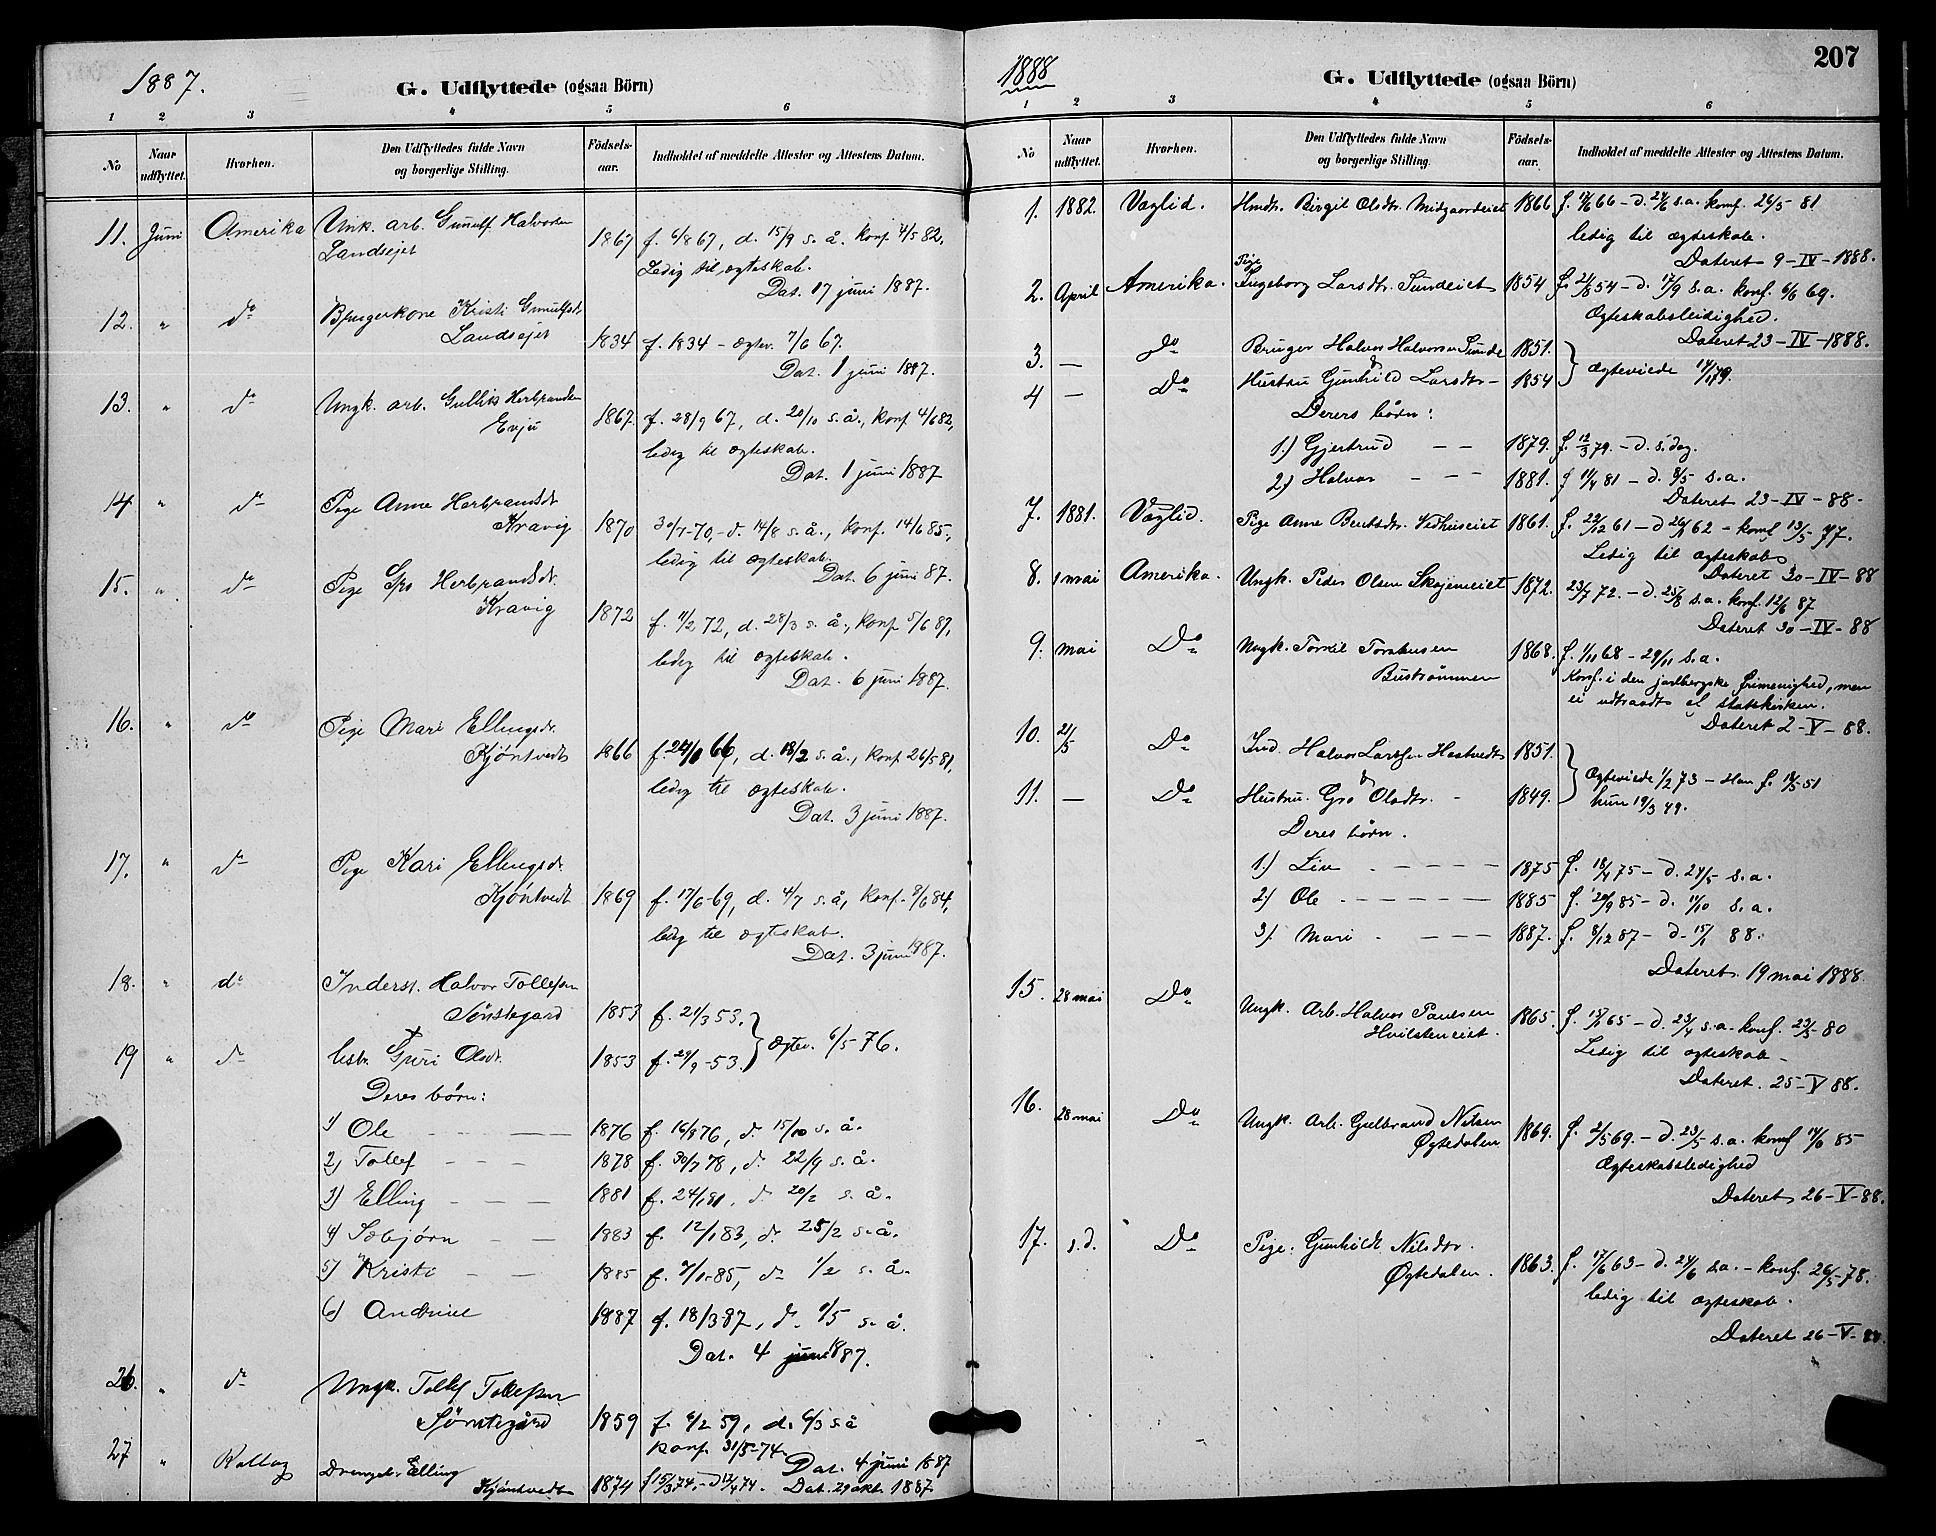 1887.
G. Udflyttede (ogsaa Börn)
1 2 3 4 5 6
No
Naar udflyttet.
Hvorhen.
Den Udflyttedes fulde Navn
og borgerlige Stilling.
Födsels-
aar.
Indholdet af meddelte Attester og Attestens Datum.
11. Juni Amerika Unk. arb. Gunulf Halvorsen
Landsejet 1867 f. 6/8 67, d. 15/9 s. å. konf. 4/5 82.
Ledig til ægteskab.
Dat. 17 juni 1887.
12. " do Brugerkone Kristi Gunulfsdr
Landsejet 1834 f. 1834 – ægtev. 7/6 67.
Dat. 1 juni 1887.
13. " do Ungk. arb. Gullik Herbrandsen
Evju 1867. f. 28/9 67, d. 20/10 s. å., konf 4/6 82,
ledig til ægteskab.
Dat. 1 juni 1887
14 " do Pige Anne Herbrandsdr
Kravig 1870 30/7-70, - d. 14/8 s. å., konf. 14/6 85.,
ledig til ægteskab.
Dat. 6 juni 87.
15. " do Pige Herbrandsdr.
Kravig 1872 f. 11/2 72, d. 28/3 s. å., konf 5/6 87,
ledig til ægteskab.
Dat. 6 juni 1887.
16. " do Pige Mari Ellingsdr
Kjöntvedt 1866 f. 24/1 66, d. 18/2 s. å., konf 26/5 81,
ledig til ægteskab.
Dat. 3 juni 1887.
17. " do Pige Kari Ellingsdr.
Kjöntvedt 1869 f. 17/6-69, d. 4/7 s. å, konf. 8/6 84,
ledig til ægteskab.
Dat. 3 juni 1887.
18. " do Inderst. Halvor Tollefsen
Sönstegard 1853 f. 21/3 53.
ægtev. 6/5-76.
19 " do Guri Olsdr. 1853 f. 29/9-53.
Deres börn:
1) Ole 1876 f. 16/9 76, d. 15/10 s. å.
2) Tollef 1878 f. 30/7 78, d. 22/9 s. å.
3) Elling 1881 f. 24/1 81, d 20/2 s. å.
4) Sæbjörn 1883 f. 12/1 83, d. 25/2 s. å.
5) Kristi 1885 f. 9/1-85, d. 1/2 s. å.
6) 1887 f. 18/3 87, d. 1/5 s. å.
Dat. 4 juni 1887.
26. " do Ungk. Tollef Tollefsen
Sönstegård 1859 f. 6/2 59, d. 6/3 s å
konf. 31/5-74.
Dat. 4 juni 1887
27 " Rollag Drengeb. Elling
Kjöntvedt 1874 f 15/3 74, - d 12/4 74. Dat. 29 okt. 1887
207
1888
G. Udflyttede (ogsaa Börn)
1 2 3 4 5 6
No
Naar
udflyttet.
Hvorhen.
Den Udflyttedes fulde Navn
og borgerlige Stilling.
Födsels-
aar.
Indholdet af meddelte Attester og Attestens Datum.
1. 1882. Væglid. Birgit Olsdtr. Midgaardeiet 1866 f. 11/6 66 – d. 24/6 s. a. konf. 26/5 – 81
ledig til ægteskab.
Dateret 9 – IV – 1888.
2. April Amerika. Pige Ingeborg Larsdtr. Sundeiet 1854 f. 21/8 54 – d. 17/9 s. a. konf. 6/6 69.
Ægteskabsledighed.
Dateret 23 – IV – 1888.
3. — Do Bruger Halvor Halvorsen Sunde 1851.
&
Ægteviede 17/1 79.
4 — Do Hustru Gunhild Larsdtr – 1854
Deres börn:
1.) Gjertrud – – 1879. f. 12/3 79. – d. s. dag.
2) Halvor – – – 1881. f 11/4 81 – d. 8/5 s. a.
Dateret 23 – IV – 88.
7. 1881. Væglid. Pige Anne Bentsdtr. Vedhuseiet 1861. f. 22/12 61 – d 26/1 62 – konf 13/5 77.
Ledig til ægteskab
Dateret 30 – IV – 88
8. 1 mai Amerika. Ungk. Peder Olsen Skajemeiet 1872. 23/7 72. – d. 25/8 s. a. konf. 12/6 87
Dateret 30 – IV – 88
9. mai Do Ungk. Torkil Torstensen
Buströmmen 1868. f. 1/11 68 – 29/11 s. a.
Konf. i den jarlbergske frimenighed, men
ei udtraadt af statskirken.
Dateret 2 – V – 88.
10. 21/5 Do Ind. Halvor Larssen Hostvedt 1851.
&
Ægteviede 1/2 73 – Han f. 14/5 51
hun 19/3 49.
11. — Do Hustru. Gro Olsdtr. – 1849.
Deres börn.
1) Liv 1875 f. 18/4 75 – d. 24/5 s. a.
2) Ole 1885 f. 20/9 85 – d. 11/10 s. a.
3) Mari 1887. f. 8/12 87 – d. 15/1 88.
Dateret 19 mai 1888.
15. 28 mai Do Ungk. Arb. Halvor Paulsen
Hvilsteneiet. 1865. f. 15/1 65 – d. 23/4 s. a. konf. 23/5 – 80
Ledig til ægteskab –
Dateret. 25 – V 88.
16. 28 mai Do Ungk. Arb. Gulbrand Nilsen
Øgtedalen 1869. f. 2/5 69. – d. 23/5 s. a. konf 14/6 85
Ægteskabsledighed
Dateret 26 – V – 88.
17. s. d. Do Pige. Gunhild Nilsdtr.
Øgtedalen. 1863. f. 17/6 63 – d. 24/6 s. a. – konf. 26/5 – 78.
ledig til ægteskab.
Dateret 26 – V – 88